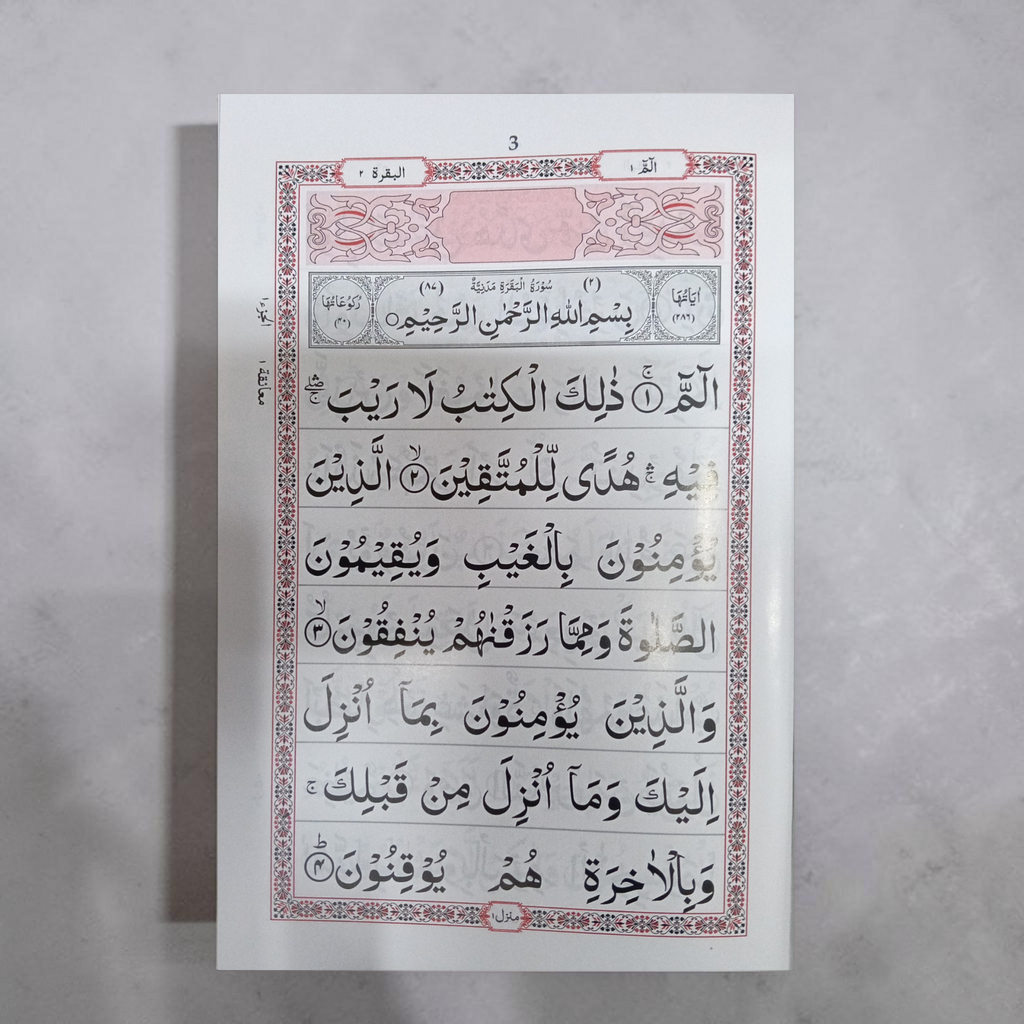 3
الٓمّٓ ١
البقرة ٢
اٰيَاتُهَا
(٢٨٦)
(٢) سُوْرَةُ الْبَقَرَةِ مَدَنِيَّةٌ (٨٧)
بِسْمِ اللّٰهِ الرَّحْمٰنِ الرَّحِيْمِ ○
رُكُوْعَاتُهَا
(٤٠)
الٓمّٓ ۚ ﴿١﴾ ذٰلِكَ الْكِتٰبُ لَا رَيْبَ ۛۚ
فِيْهِ ۛۚ هُدًى لِّلْمُتَّقِيْنَ ۙ ﴿٢﴾ الَّذِيْنَ
يُؤْمِنُوْنَ بِالْغَيْبِ وَيُقِيْمُوْنَ
الصَّلٰوةَ وَمِمَّا رَزَقْنٰهُمْ يُنْفِقُوْنَ ۙ ﴿٣﴾
وَالَّذِيْنَ يُؤْمِنُوْنَ بِمَآ اُنْزِلَ
اِلَيْكَ وَمَآ اُنْزِلَ مِنْ قَبْلِكَ ۚ
وَبِالْاٰخِرَةِ هُمْ يُوْقِنُوْنَ ؕ ﴿۴﴾
الجزء ١
معانقة ١
منزل ١